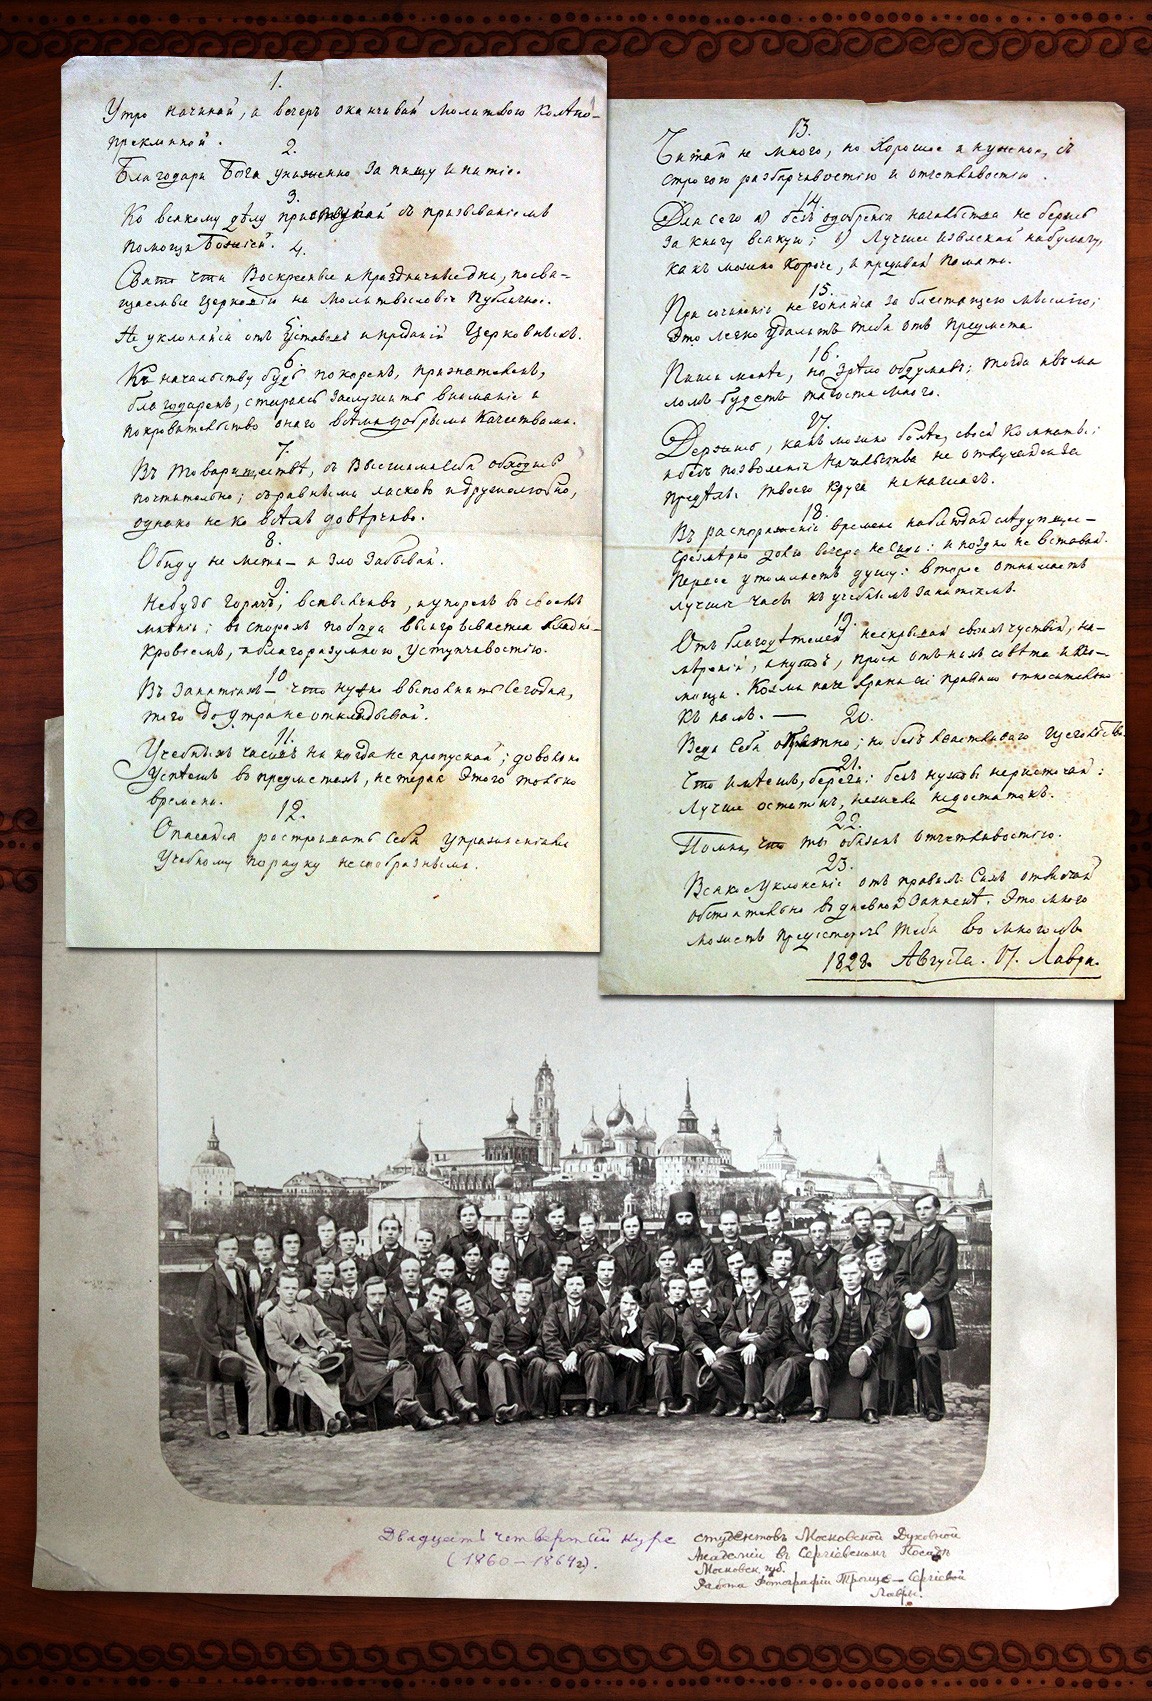 1.
Утро начинай, а вечеръ оканчивай молитвою колѣно-
преклонной.
2.
Благодари Бога униженно за пищу и питіе.
3.
Ко всякому дѣлу приступай съ призываніемъ
помощи Божіей.
4.
Свято чти Воскресные и праздничные дни, посвя-
щаемые Церковію на молитвословіе публичное.
5.
Не уклоняйся отъ Уставовъ и преданій Церковныхъ.
6.
Къ начальству будь покоренъ, признателенъ,
благодаренъ, стараясь заслужить вниманіе и
покровительство онаго всѣми добрыми качествами.
7.
Въ товариществѣ, съ высшими себя обходись
почтительно; съ равными ласково и дружелюбно,
однако не ко всѣмъ довѣрчиво.
8.
Обиду не мсти – и зло забывай.
9.
Не будь горячъ, вспыльчивъ, и упоренъ въ своемъ
мнѣніи; въ спорахъ побѣда выигрывается хладно-
кровіемъ, и благоразумною уступчивостію.
10
Въ занятіяхъ – что нужно выполнить сегодня,
того до утра не откладывай.
11.
Учебныхъ часовъ никогда не пропускай; довольно
успѣешь въ предметахъ, не теряя этого только
времени.
12.
Опасайся разстроивать себя упражненіями
учебному порядку несообразными.
13.
Читай не много, но хорошее и нужное, съ
строгою разборчивостію и отчетливостію.
14.
Для сего а) безъ одобренія начальства не берись
за книгу всякую; b) Лучшее извлекай на бумагу,
какъ можно короче, и предавай памяти.
15.
При сочиненіи не гоняйся за блестящею мыслію;
это легко удалитъ тебя отъ предмета
16.
Пиши менѣе, но зрѣло обдумавъ; тогда и въ ма
ломъ будетъ много.
17.
Держись, какъ можно болѣе, своей комнаты;
и безъ позволенія начальства не отлучайся за
предѣлы твоего круга ни на шагъ.
18.
Въ распоряженіи времени наблюдай слѣдующее –
Чрезмѣрно долго вечера не сиди: и поздно не вставай.
Первое утомляетъ душу: второе отнимаетъ
лучшіе часы къ учебнымъ занятіямъ.
19.
Отъ благодѣтелей не скрывай своихъ чувствій, на-
мѣреній, и нуждъ, проси отъ нихъ совѣта и по-
мощи. Кольми паче храни сіе правило относительно
къ намъ. —
20.
Веди себя опрятно; но безъ хвастливаго щегольства.
21.
Что имѣешь, береги: безъ нужды не расточай:
Лучше остатки, нежели недостатокъ.
22.
Помни, что ты обязанъ отчетливостію.
23.
Всякое уклоненіе отъ правилъ симъ отвѣчай
обстоятельно въ дневной запискѣ. Это много
можетъ предостеречь тебя во многомъ
1828. Августа. 17. Лавра.
Двадцать четвертый курс
(1860–1864 г).
студентовъ Московской Духовной
Академіи въ Сергіевскомъ Посадѣ
Московск. губ.
Работа Фотографіи Троице–Сергіевой
Лавры.